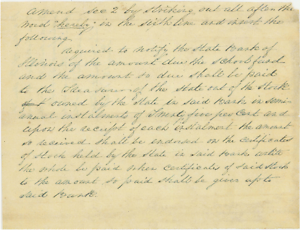 Amend Sec 2 by striking out all after the
word "hereby" in the sixth line and insert the
following
required to notify the State Bank of
Illinois of the amount due the school fund
and the amount so due shall be paid
to the Treasurer of the State out of the Stock
owned by the State in said Bank in semi
annual instalments of twenty five per cent and
upon the receipt of each instalment the amount
so received shall be endorsed on the certificates
of stock held by the State in said Bank until
the whole be paid when certificates of said Stock
to the amount so paid shall be given up to
said Bank.